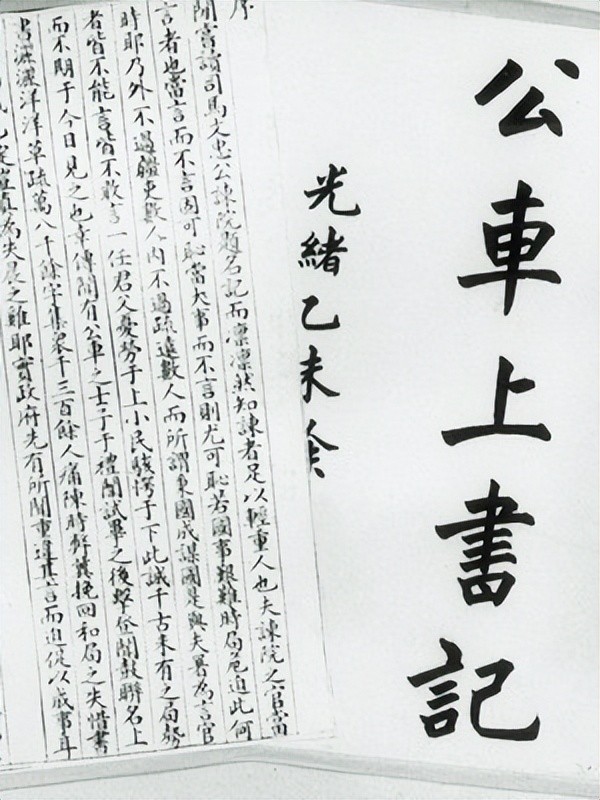 公車上書記
光緒乙未
序
聞嘗讀司馬文忠公諫院題名記而凜凜然知諫者足以輕重人也夫諫院之官當
言者也當言而不言固可恥當大事而不言則尤可恥若國事艱難時局危迫此何
時耶乃外不過疆吏數人內不過疏遠數人而所謂秉國成謀國是與夫署為言官
者皆不能言皆不敢言一任君父憂勞于上小民駭愕于下此誠千古未有之局勢
而不期于今日見之也幸傳聞有公車之士子于禮闈試畢之後擊登聞鼓聯名上
書灑灑洋洋草疏萬八千餘字集眾千三百餘人痛陳時弊冀挽回和局之失惜書
為失晨之雞耶實政府先有所聞重違其言而迫促以成事耳